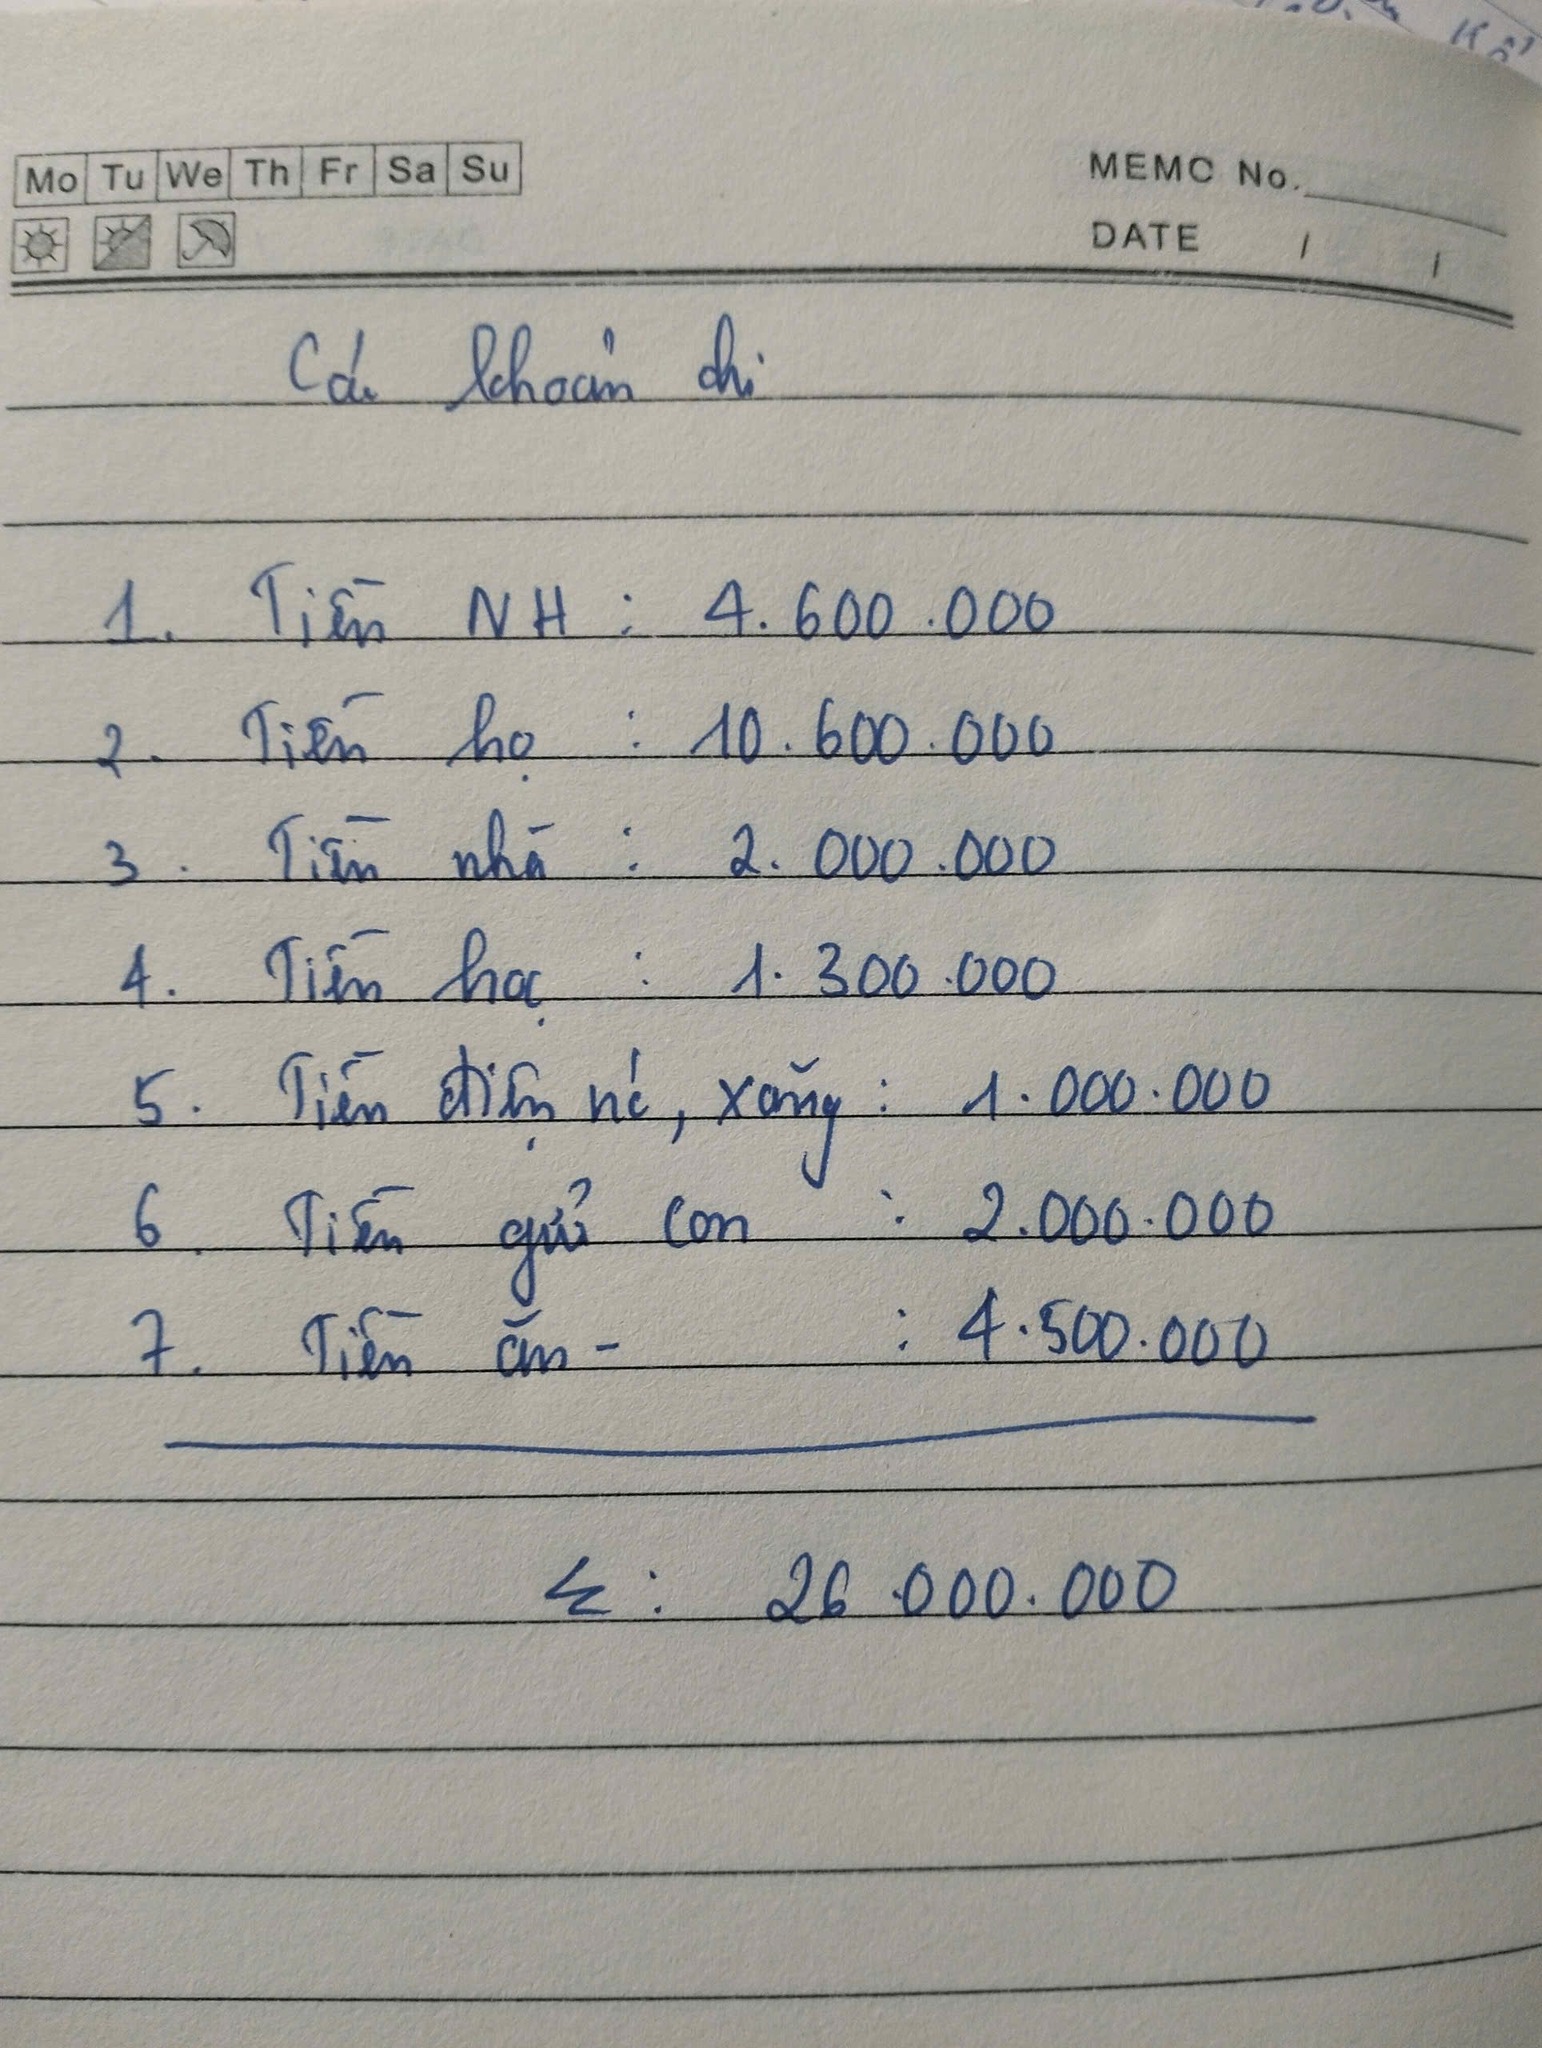 Mo Tu We Th Fr Sa Su
MEMO No.
DATE / /
Các khoản chi
1. Tiền NH : 4.600.000
2. Tiền họ : 10.600.000
3. Tiền nhà : 2.000.000
4. Tiền học : 1.300.000
5. Tiền điện nć, xăng : 1.000.000
6. Tiền gửi con : 2.000.000
7. Tiền ăn - : 4.500.000
Σ : 26.000.000